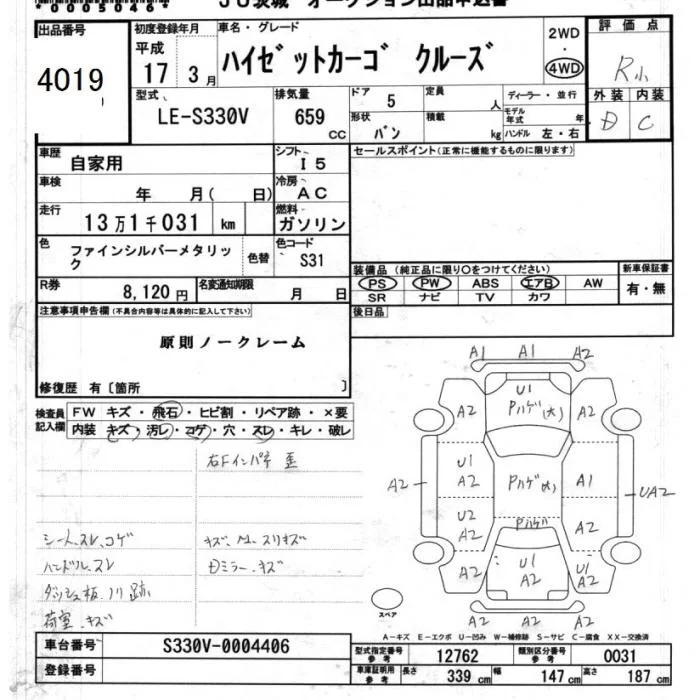 *0005046*
JU茨城 オークション出品申込書
出品番号
4019
初度登録年月
平成
17 3 月
車名・グレード
ハイゼットカーゴ クルーズ
2WD
・
4WD
評価点
R小
外装 内装
D C
型式
LE-S330V
排気量
659
CC
ドア 5
定員 人
形状 バン
積載 kg
ディーラー・並行
モデル年式 年
ハンドル 左・右
車歴
自家用
シフト
I5
車検
年 月( 日)
冷房
AC
走行
13万1千031 km
燃料
ガソリン
色
ファインシルバーメタリック
色替
色コード
S31
R券
8,120円
名変通知期限 月 日
セールスポイント(正常に機能するものに限ります)
装備品(純正品に限り○をつけてください)
PS PW ABS エアB AW
SR ナビ TV カワ
新車保証書
有・無
後日品
注意事項申告欄(不具合内容等は具体的に記入して下さい)
原則ノークレーム
修復歴 有〔箇所 〕
検査員記入欄
FW キズ・飛石・ヒビ割・リペア跡・×要
内装 キズ・汚レ・コゲ・穴・スレ・キレ・破レ
右Fインパネ 歪
シート.スレ.コゲ
ハンドル.スレ
ダッシュ板.ノリ跡
荷室.キズ
Dミラー.キズ
A1 A1 A2
A2 U1 A2
Pハゲ(大)
U1
A2 A2 Pハゲ(大) A1 UA2
U2
A2 Pハゲ A2
A2 U1
A2 U1
A2
A2 A2
スペア
A-キズ E-エクボ U-凹み W-補修跡 S-サビ C-腐食 XX-交換済
車台番号 S330V-0004406
登録番号
型式指定番号 参考 12762 類別区分番号 参考 0031
車庫証明用 参考 長さ 339 cm 幅 147 cm 高さ 187 cm